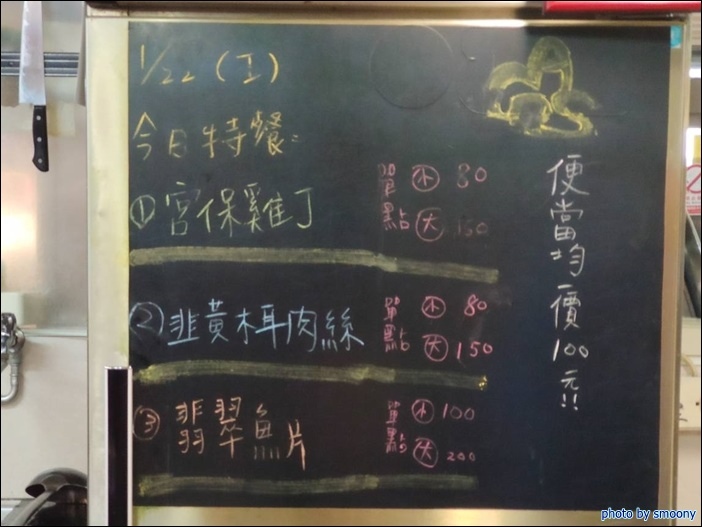 1/22（工）
今日特餐：
① 宮保雞丁
單點 小 80
大 150
② 韭黃木耳肉絲
單點 小 80
大 150
③ 翡翠魚片
單點 小 100
大 200
便當均一價100元!!
photo by smoony